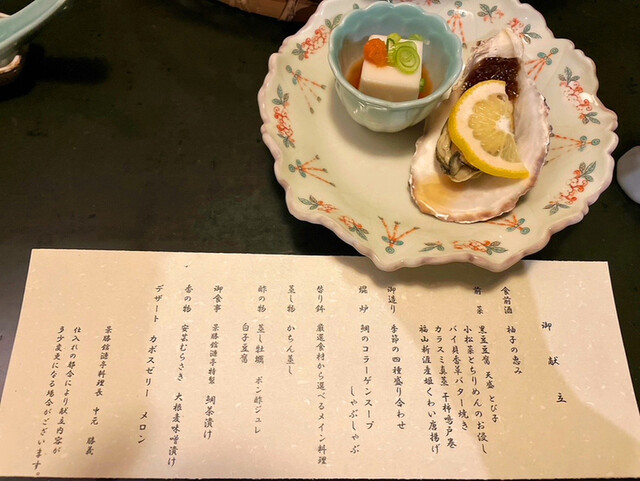 御献立
食前酒 柚子の恵み
前菜 黒豆豆腐 天盛 とび子
小松菜とちりめんのお浸し
バイ貝香草バター焼き
カラスミ真薯 干柿鳴戸巻
福山新涯産姫くわい唐揚げ
御造り 季節の四種盛り合わせ
焜炉 鯛のコラーゲンスープ
しゃぶしゃぶ
替り鉢 厳選食材から選べるメイン料理
蒸し物 かちん蒸し
酢の物 蒸し牡蠣 ポン酢ジュレ
白子豆腐
御食事 景勝館漣亭特製 鯛茶漬け
香の物 安芸むらさき 大根麦味噌漬け
デザート カボスゼリー メロン
景勝館漣亭料理長 中元 勝義
仕入れの都合により献立内容が
多少変更になる場合がございます。